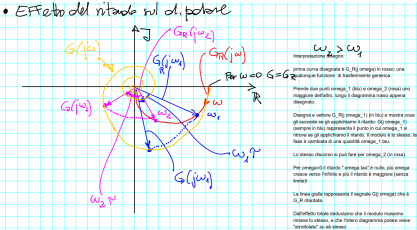 • Effetto del ritardo sul d. polare
G_R(jω_2)
G(jω)
G_R(jω_1)
G_R(jω)
Per ω=0 G=G_R
ω
ℝ
G(jω_2)
ω_2
ω_1
ω_1τ
ω_2τ
G(jω_1)
ω_2 > ω_1
Interpretazione disegno:
prima curva disegnata è G_R(j omega) in rosso: una
qualunque funzione di trasferimento generica
Prende due punti omega_1 (blu) e omega_2 (rosa) uno
maggiore dell'altro, lungo il diagramma rosso appena
disegnato.
Disegna e vettore G_R(j omega_1) (in blu) e mostra cosa
gli succede se gli applichiamo il ritardo: G(j omega_1)
(sempre in blu) rappresenta il punto in cui omega_1 si
ritrova se gli applichiamo il ritardo. Il modulo è lo stesso, la
fase è cambiata di una quantità omega_1 tau.
Lo stesso discorso si può fare per omega_2 (in rosa).
Per omega=0 il ritardo " omega tau" è nullo, più omega
cresce verso l'infinito e più il ritardo è maggiore (senza
limiti)!
La linea gialla rappresenta il segnale G(j omega) che è
G_R ritardata.
Dall'effetto totale deduciamo che il modulo massimo
rimane lo stesso, e che l'intero diagramma polare viene
"arrotolato" su sé stesso